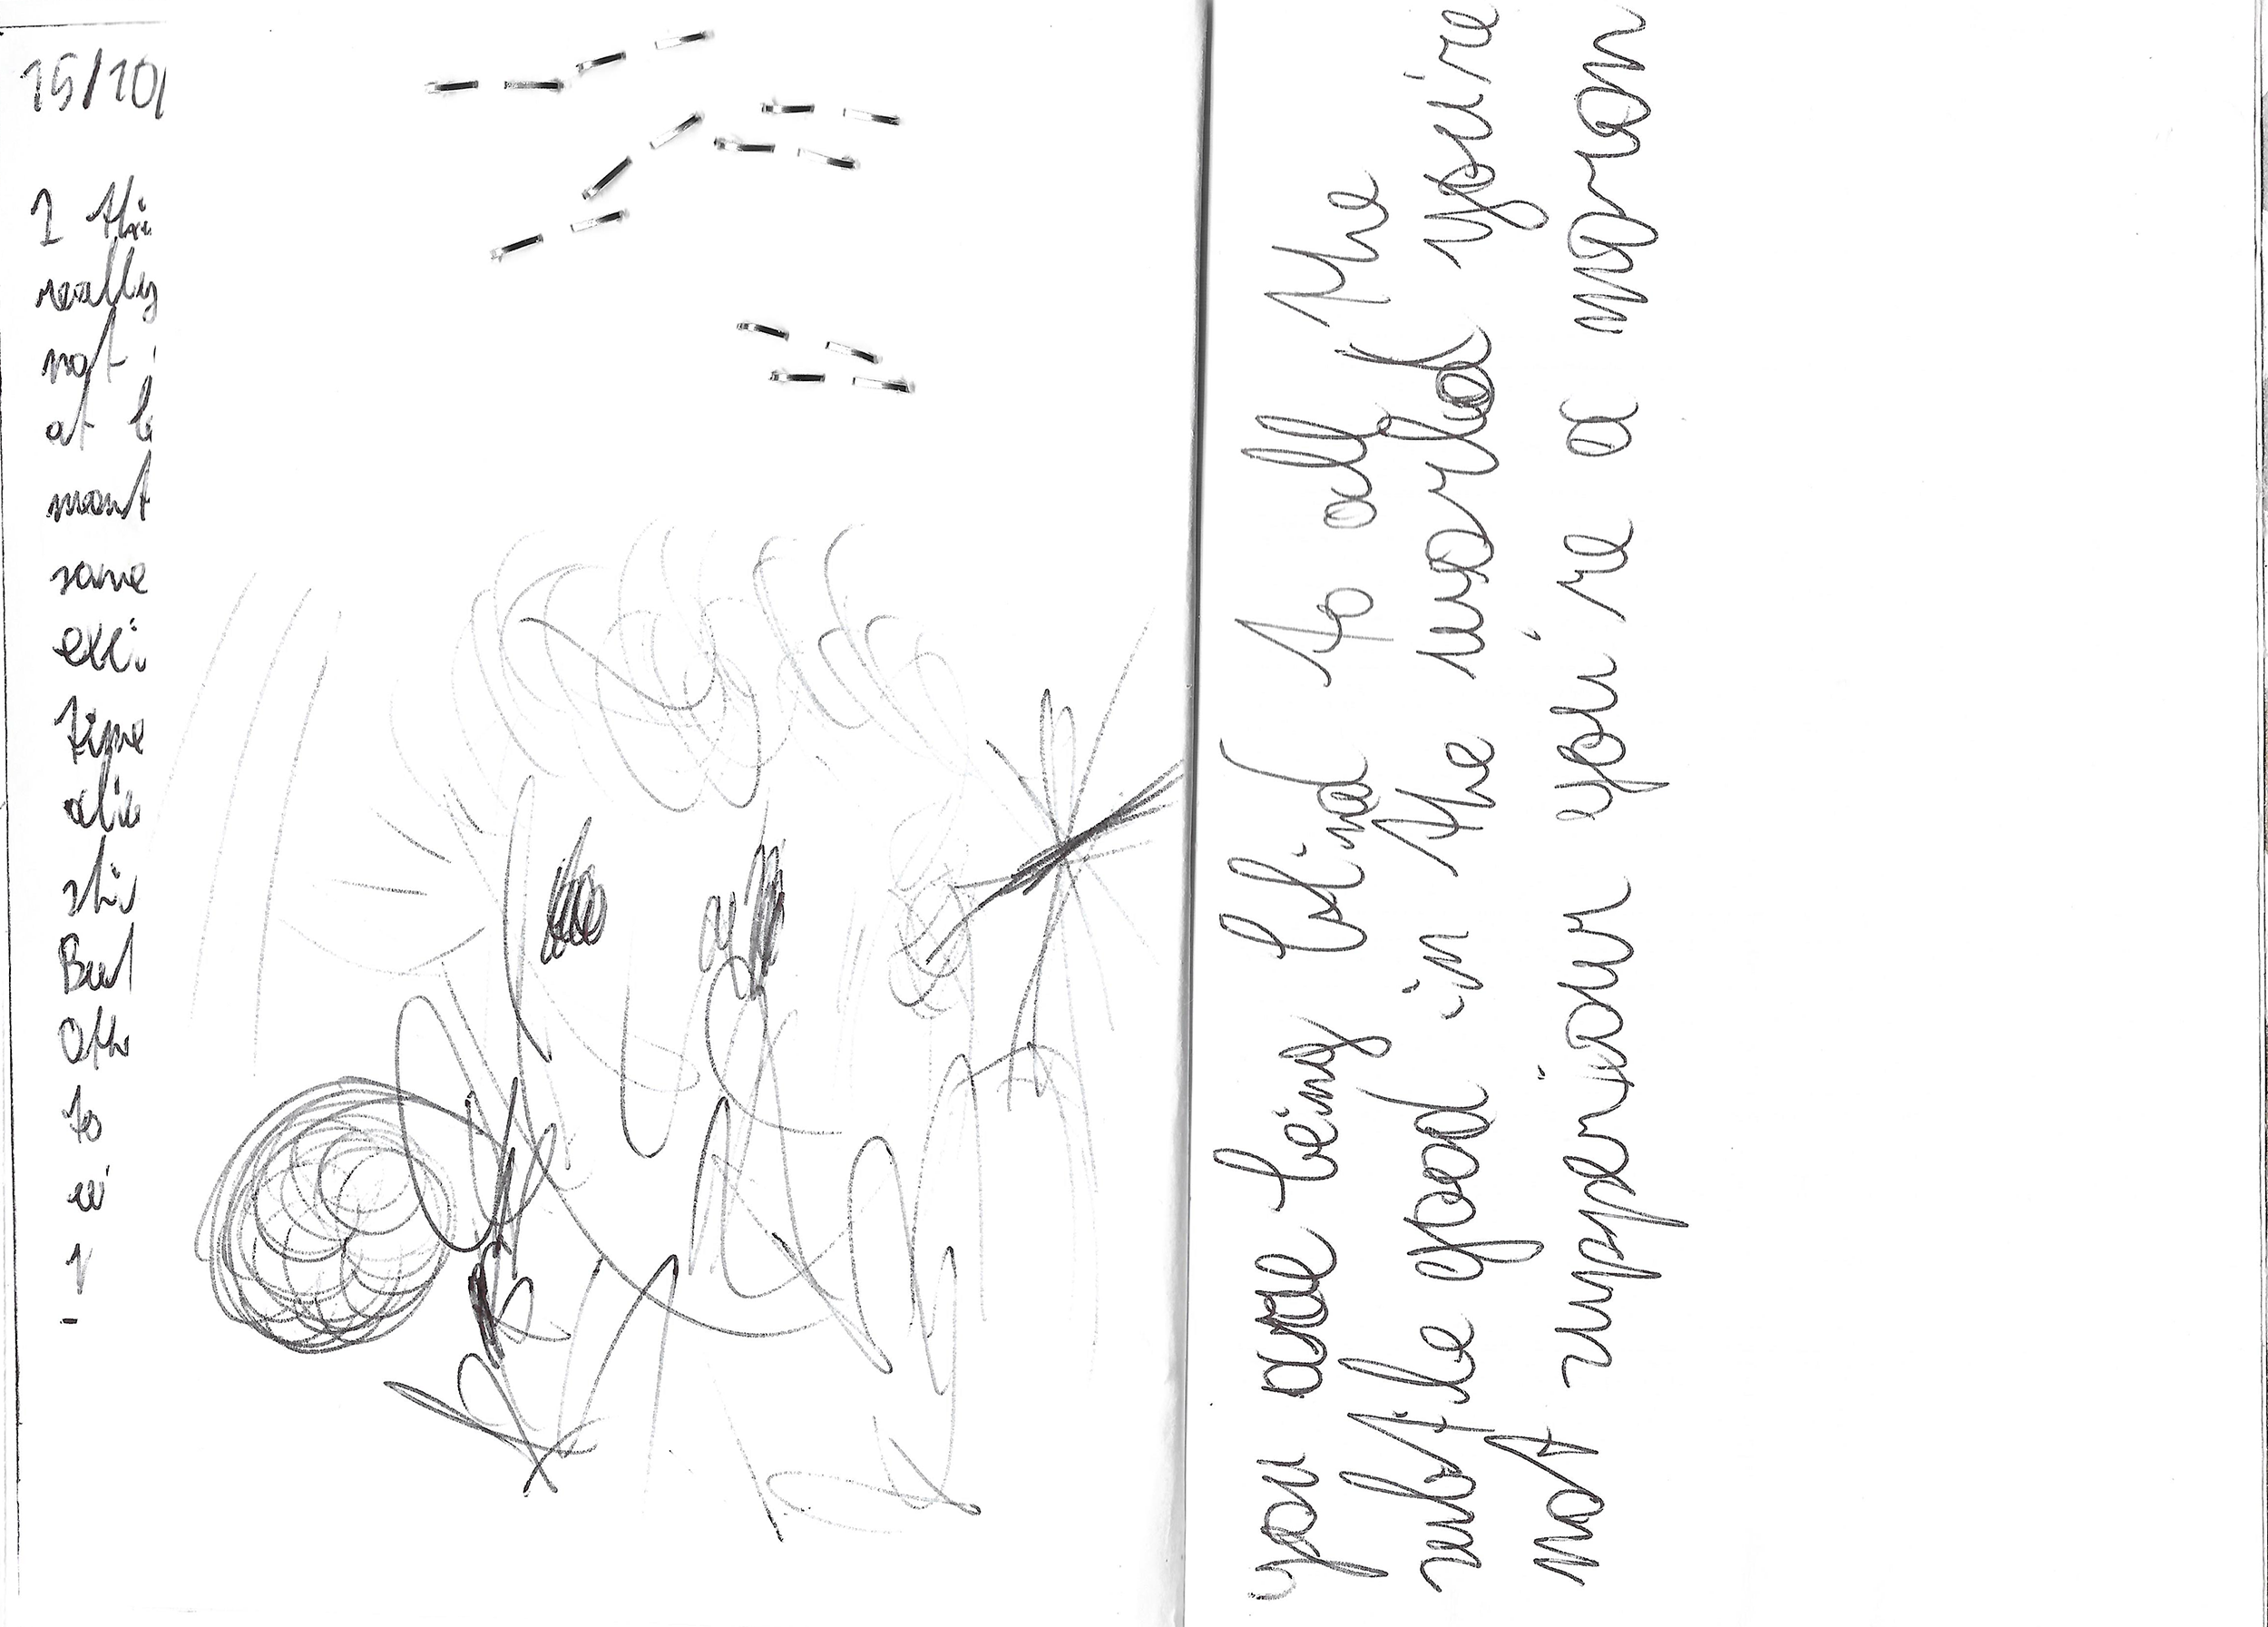 15/10/
I thi
really
not
at l
mont
some
exci
time
alie
shi
But
Othe
to
you are being blind to all the
subtle good in the world you're
not superiour you're a moron